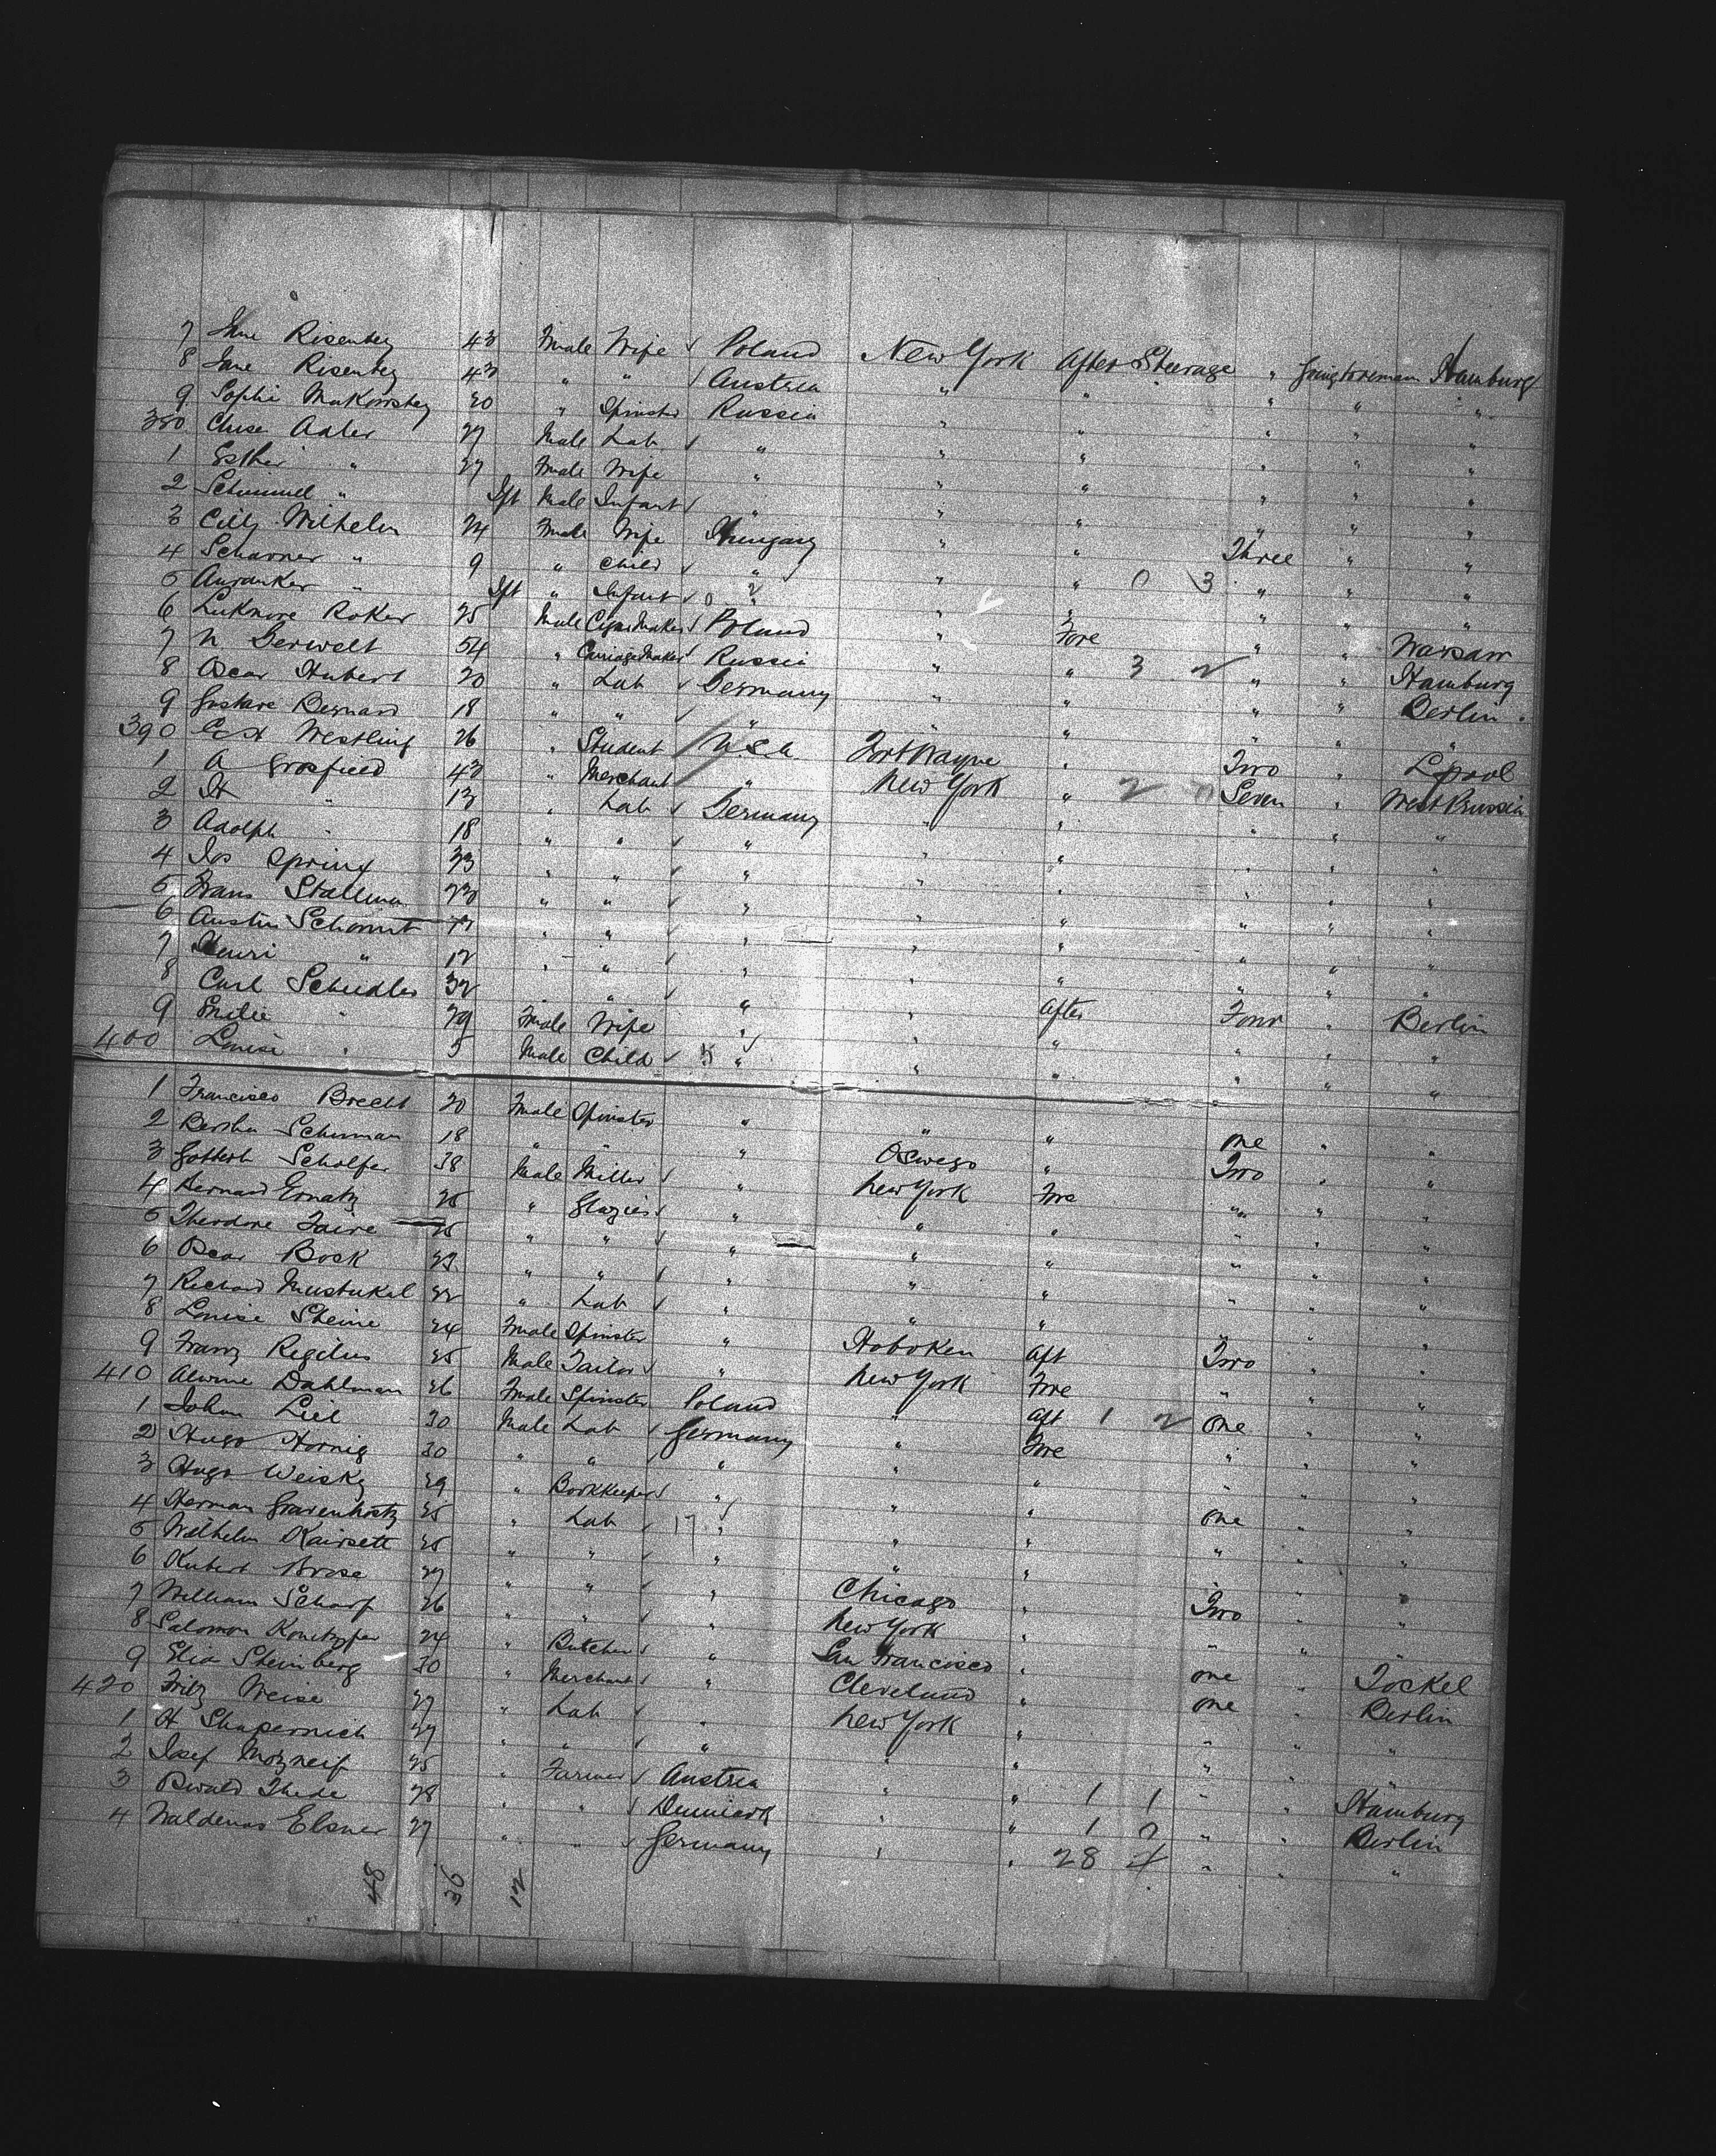 7 Jane Risenberg 43 Fmale Wife ✓ Poland New York After Steerage " Hamburg
8 Jane Risenberg 43 " " ✓ Austria " " " " "
9 Sophi 20 " Spinster Russia " " " " "
380 Adler 27 Male Lab ✓ " " " " " "
1 Esther " 27 Fmale Wife " " " " " "
2 Schummel " Ift Male Infant ✓ " " " " " "
3 Cilly Wilhelm 24 Fmale Wife Hungary " " Three " "
4 " 9 " Child ✓ " " " 0 3 " " "
5 " Ift " Infant ✓ 0 " " " " " "
6 Roker 25 Male Cigar Maker ✓ Poland " Fore " " Warsaw
7 N Derwelt 54 " Carriage Maker ✓ Russia " " 3 2 " " Hamburg
8 Oscar Hubert 20 " Lab ✓ Germany " " " " Berlin
9 Gustave Bernard 18 " " ✓ " " " " " "
390 Westling 26 " Student U.S.A. Fort Wayne " Two " L'pool
1 A Grosfield 43 " Merchant " New York " 2 0 Seven " West Prussia
2 H " 13 " Lab ✓ Germany " " " " "
3 Adolph " 18 " " ✓ " " " " " "
4 Jos Spring 23 " " ✓ " " " " " "
5 Frans Stallman 23 " " ✓ " " " " " "
6 Austin Schomit 17 " " ✓ " " " " " "
7 Henri " 12 " " ✓ " " " " " "
8 Carl Schedler 32 " " ✓ " " After Four " Berlin
9 Emilie " 29 Fmale Wife " " " " " "
400 Louise " 5 Fmale Child ✓ " " " " " "
1 Francisco Brecht 20 Fmale Spinster " " " One " "
2 Bertha Schuman 18 " " " Oswego " Two " "
3 Scholfer 38 Male Miller ✓ " New York Fore " " "
4 Bernard Ernatz 25 " Glazier ✓ " " " " " "
5 Theodore Faire 25 " " " " " " " "
6 Oscar Bock 23 " " ✓ " " " " " "
7 Richard Mustukal 22 " Lab ✓ " " " " " "
8 Louise Sheine 24 Fmale Spinster " Hoboken Aft Two " "
9 Franz Regilus 25 Male Tailor ✓ " New York Fore " " "
410 Alwine Dahlman 26 Fmale Spinster Poland " Aft 1 2 One " "
1 Johan Liel 30 Male Lab ✓ Germany " Fore " " "
2 Hugo Hornig 30 " " ✓ " " " " " "
3 Hugo Weisky 29 " Bookkeeper ✓ " " " One " "
4 Herman 25 " Lab ✓ 17 " " " " " "
5 Wilhelm Kairsett 25 " " ✓ " " " " " "
6 Hubert Brose 27 " " ✓ " Chicago " Two " "
7 William Scharf 26 " " ✓ " New York " " " "
8 Salomon 24 " Butcher ✓ " San Francisco " One " Tockel
9 Elia Sheinberg 30 " Merchant ✓ " Cleveland " One " Berlin
420 Fritz Weise 27 " Lab ✓ " New York " " " "
1 H Shapernich 27 " " " " " " " "
2 Josef 25 " Farmer ✓ Austria " " 1 1 " " Hamburg
3 Oswald Thede 28 " " ✓ Denmark " " 1 " " Berlin
4 Waldemar Elsner 27 " " ✓ Germany " " 28 4 " " "
48 36 12